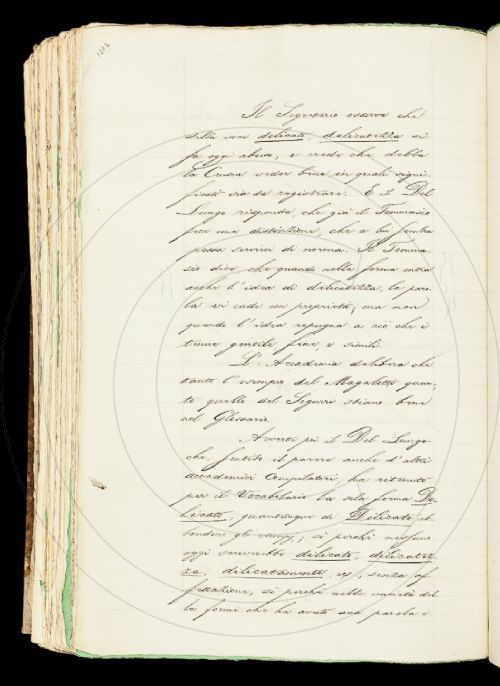 Il Segretario osserva che
della voce delicato, delicatezza si
fa oggi abuso, e crede che debba
la Crusca veder bene in quali signi-
ficati sia da registrare. E il Del
Lungo risponde, che già il Tommaseo
fece una distinzione, che a lui sembra
possa servirci di norma. Il Tomma-
seo dice, che quando nella forma entra
anche l'idea di delicatezza, la paro-
la vi cade con proprietà; ma non
quando l'idea repugna a ciò che è
tenue gentile fine, e simili.
L'Accademia delibera che
tanto l'esempio del Magalotti quan-
to quello del Segneri stiano bene
nel Glossario.
Avverte poi il Del Lungo
che, sentito il parere anche d'altri
accademici Compilatori, ha ritenuto
per il Vocabolario la sola forma De-
licato, quantunque di Dilicato ab-
bondino gli esempj; sì perchè nessuno
oggi scriverebbe dilicato, dilicatez-
za, dilicatamente, senza af-
fettazione, sì perchè nella varietà del-
le forme che ha avuto una parola è